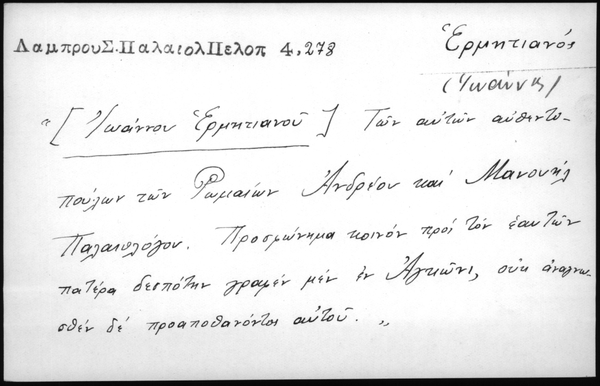 ΛαμπρουΣ.ΠαλαιολΠελοπ 4,278
Ἑρμητιανός
(Ἰωάννης)
"[Ἰωάννου Ἑρμητιανοῦ] Τῶν αὐτῶν αὐθεντο-
πούλων τῶν Ρωμαίων Ἀνδρέου καὶ Μανουήλ
Παλαιολόγου. Προσφώνημα κοινόν πρός τόν ἑαυτῶν
πατέρα δεσπότην γραφέν μέν ἐν Ἀγκῶνι, οὐκ ἀναγνω-
σθέν δέ προαποθανόντος αὐτοῦ."